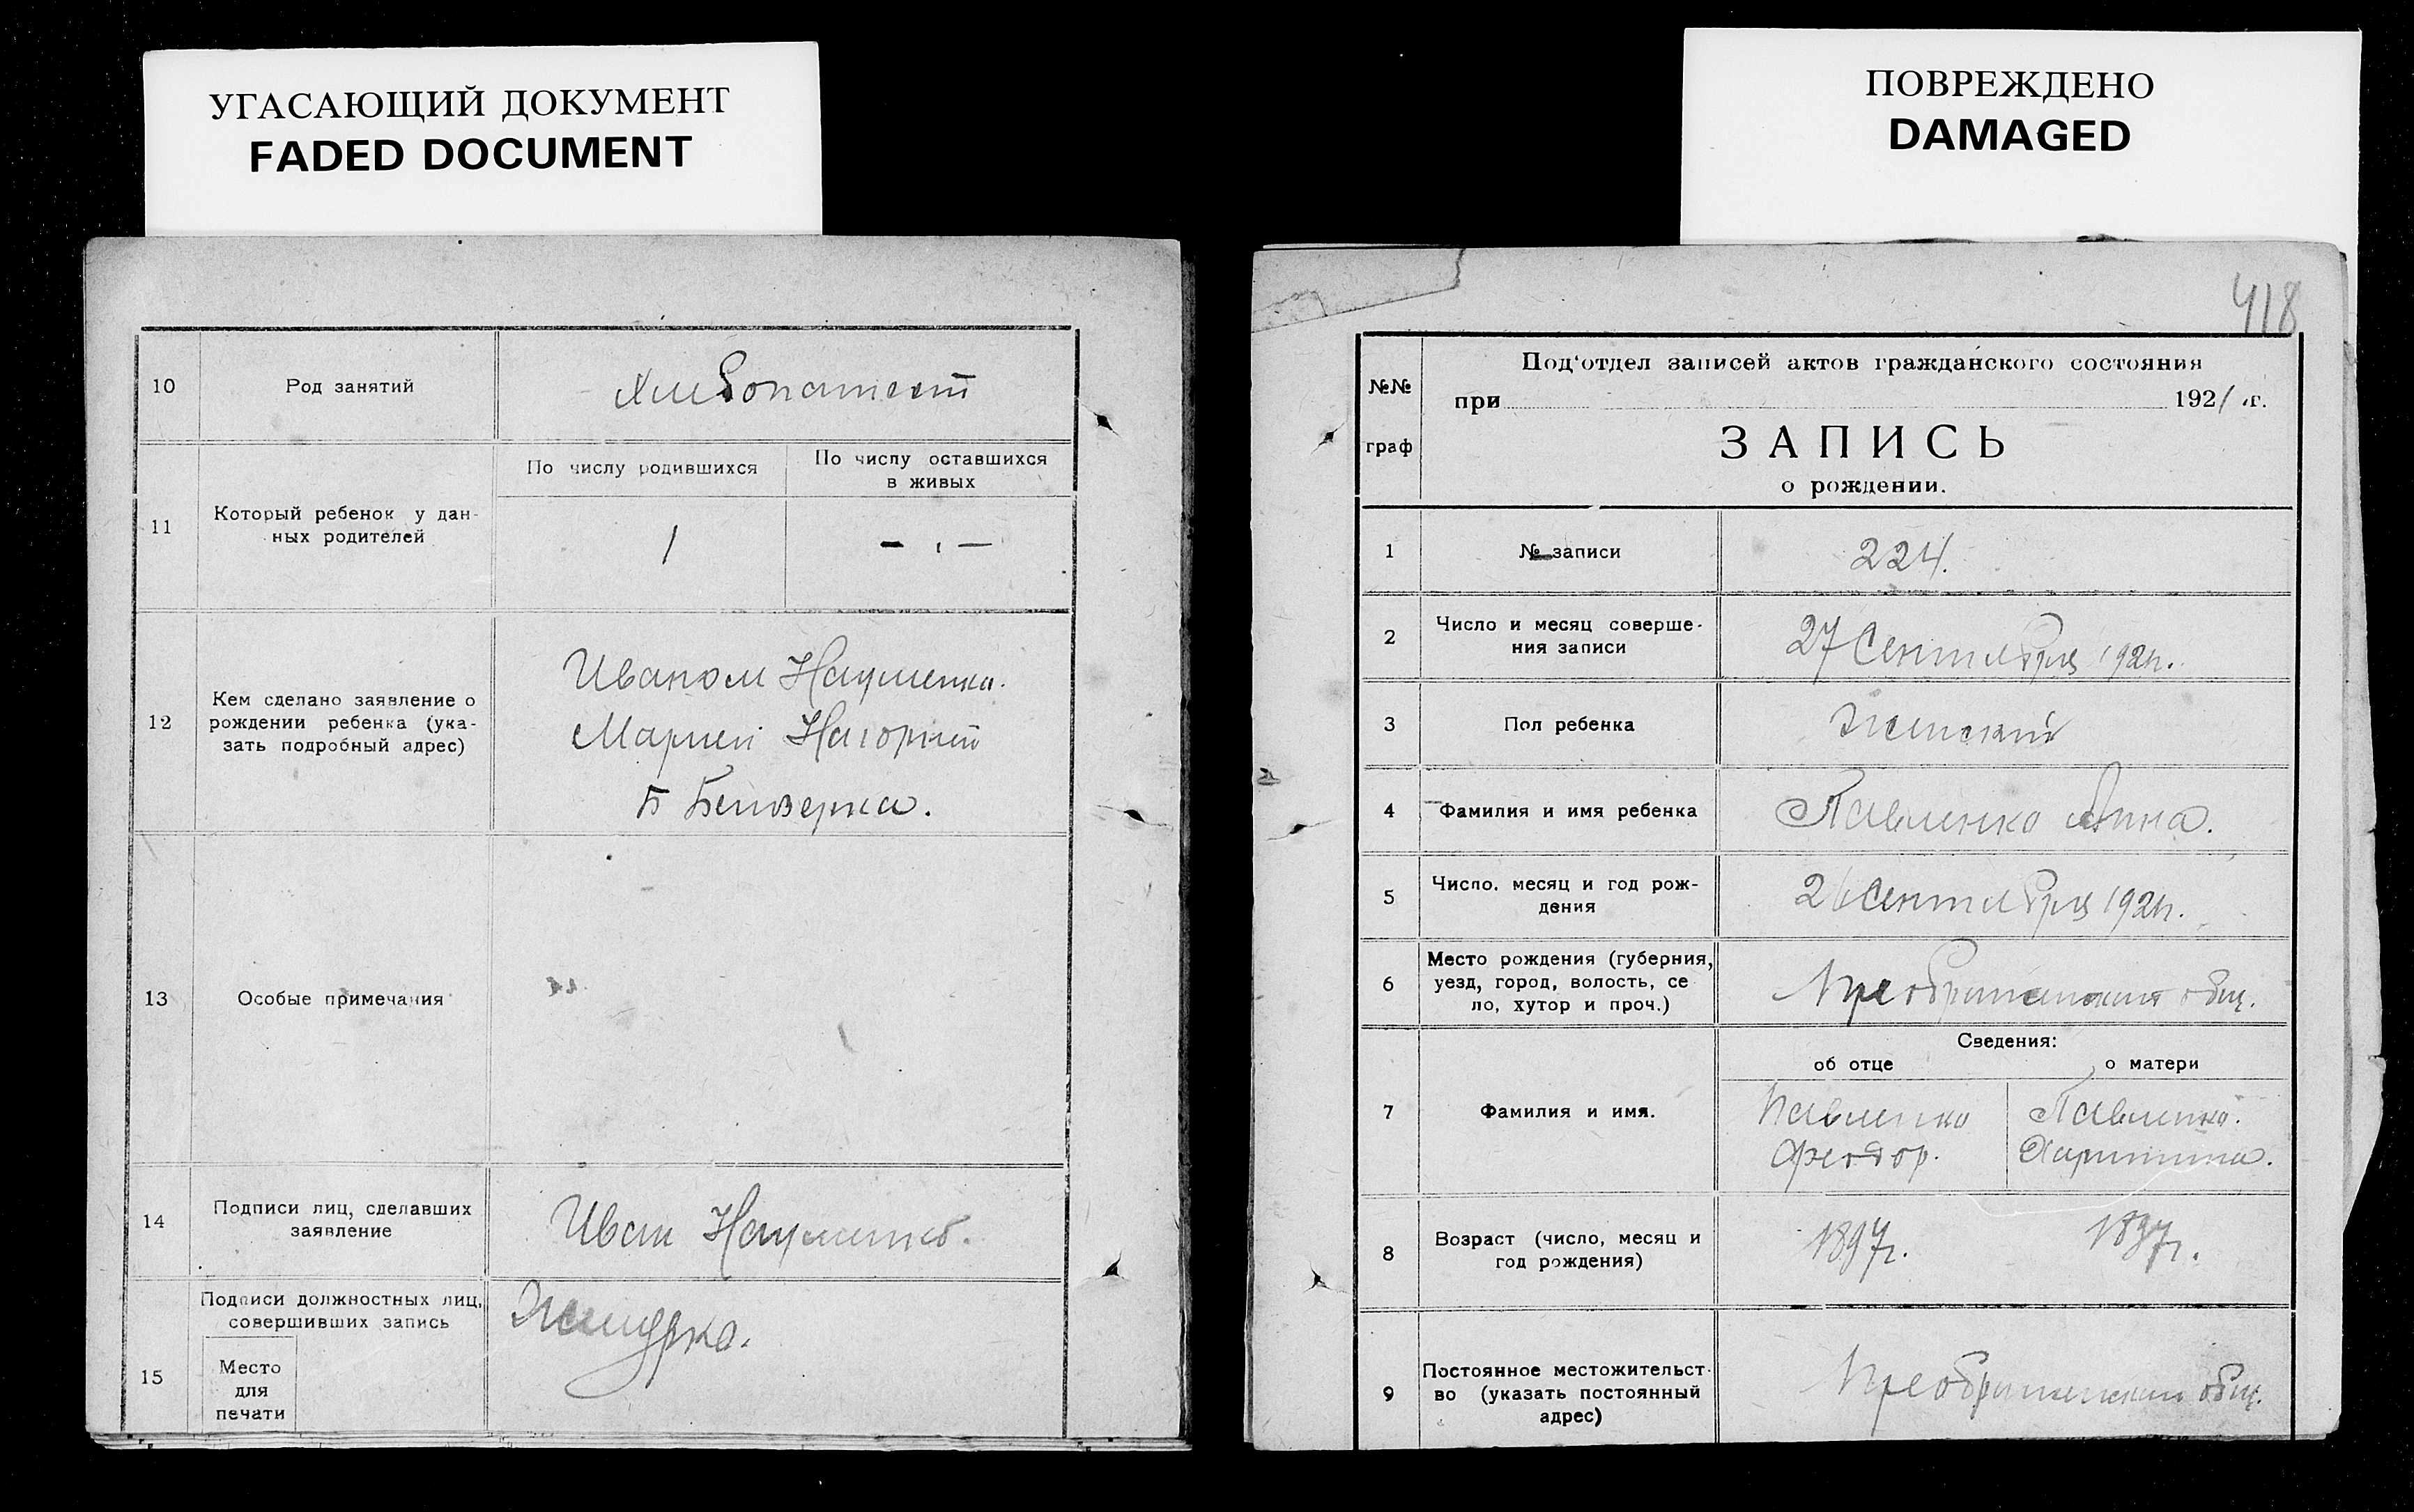 УГАСАЮЩИЙ ДОКУМЕНТ
FADED DOCUMENT
10
Род занятий
Хлебопашест
11
Который ребенок у дан-
ных родителей
По числу родившихся
По числу оставшихся
в живых
1
— " —
12
Кем сделано заявление о
рождении ребенка (ука-
зать подробный адрес)
Иваном Науменко.
Марией Нагорной
Б Белозерка.
13
Особые примечания
14
Подписи лиц, сделавших
заявление
Иван Науменко.
15
Подписи должностных лиц,
совершивших запись
Место
для
печати
ПОВРЕЖДЕНО
DAMAGED
418
№№
граф
Под'отдел записей актов гражданского состояния
при 1921 г.
ЗАПИСЬ
о рождении.
1
№ записи
224.
2
Число и месяц соверше-
ния записи
27 Сентября 1921г.
3
Пол ребенка
Женский
4
Фамилия и имя ребенка
Павленко Анна.
5
Число, месяц и год рож-
дения
26 Сентября 1921г.
6
Место рождения (губерния,
уезд, город, волость, се
ло, хутор и проч.)
Преображенской общ.
Сведения:
об отце
о матери
7
Фамилия и имя.
Павленко
Феодор.
Павленко.
Харитина.
8
Возраст (число, месяц и
год рождения)
1897г.
1897г.
9
Постоянное местожительст-
во (указать постоянный
адрес)
Преображенской общ.